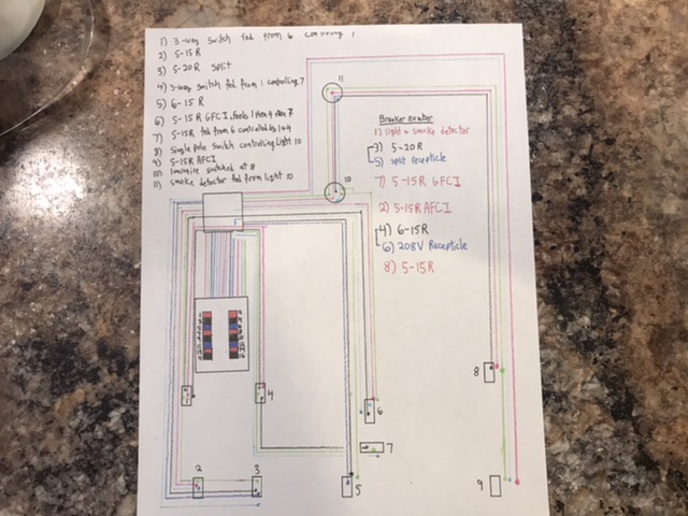 1) 3-way switch fed from 6 controling 7
2) 5-15R
3) 5-20R split
4) 3-way switch fed from 1 controlling 7
5) 6-15R
6) 5-15R GFCI, feeds 1 then 4 then 7
7) 5-15R fed from 6 controlled by 1+4
8) Single pole switch controlling light 10
9) 5-15R AFCI
10) luminaire switched at 8
11) smoke detector fed from light 10
Breaker number
1) light + smoke detector
3) 5-20R
5) split recepticle
7) 5-15R GFCI
2) 5-15R AFCI
4) 6-15R
6) 208V Recepticle
8) 5-15R
11
10
8
4
6
7
2
3
5
9